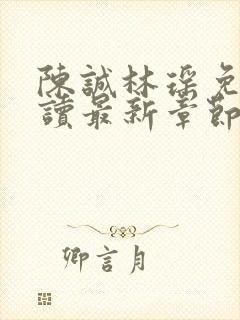 陳誠林瑤免
讀最新章節
卿言月